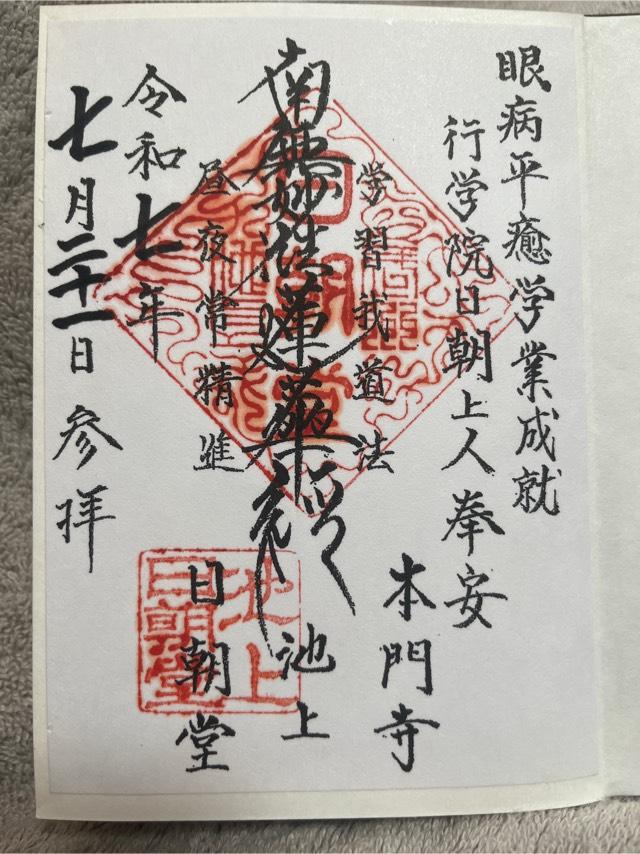 眼病平癒学業成就
行学院日朝上人奉安
本門寺
学習我道法
南無妙法蓮華経
池上
昼夜常精進
日朝堂
令和七年
七月二十一日 参拝
日朝堂
池上
日朝堂